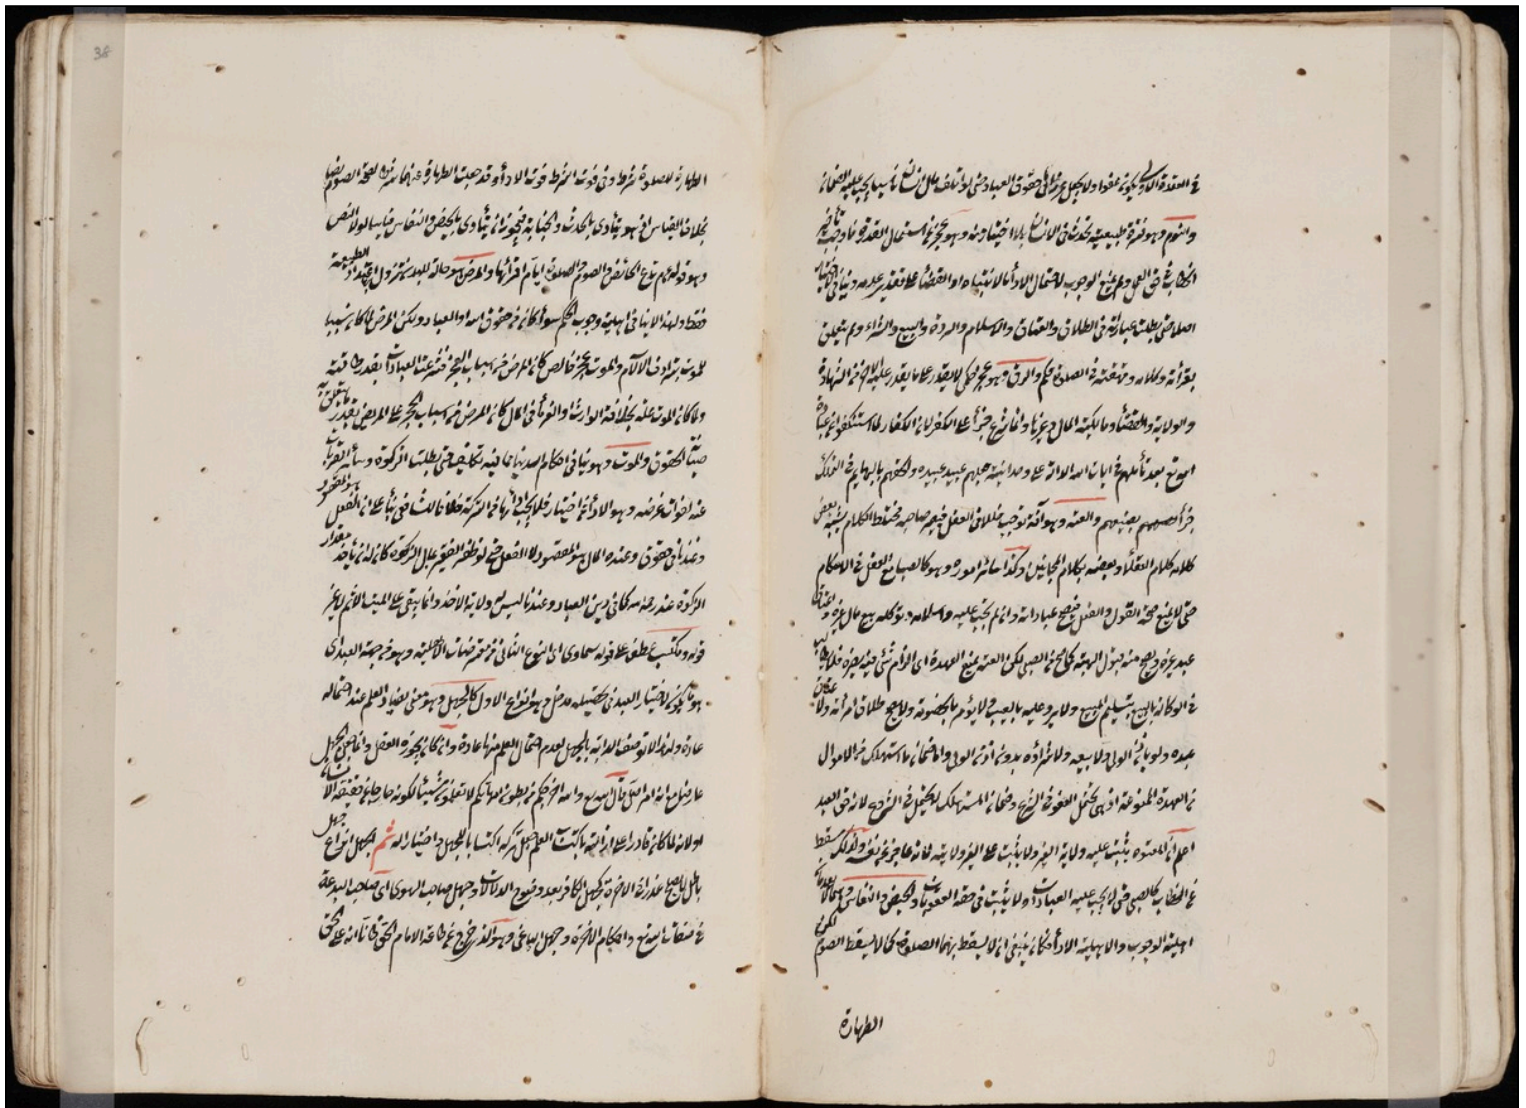 في القعدة الاولى يكون عفوا ولا يجعل عذرا في حقوق العباد حتى لو اتلف مال انسان ناسيا يجب عليه الضمان
والنوم وهو فترة طبيعية تحدث في الانسان بلا اختيار منه وهو عجز عن استعمال القدرة فاوجب تأخير
الخطاب في حق العمل ولم يمنع الوجوب لاحتمال الاداء بالانتباه او القضاء على تقدير عدمه وينافي الاختيار
اصلا حتى بطلت عباراته في الطلاق والعتاق والاسلام والردة والبيع والشراء ولم يتعلق
بقرأته وكلامه وقهقهته في الصلوة حكم والرق وهو عجز حكمي لا يقدر على ما يقدر عليه الاحرار من الشهادة
والولاية والقضاء ومالكية المال وغيرها وانما شرع جزاء على الكفر لان الكفار لما استنكفوا عن عبادة
تعالى بعد تأملهم في ايات الله الدالة على وحدانيته جعلهم عبيد عبيده والحقهم بالبهايم في التملك
جزاء والعته وهو آفة توجب خللا في العقل فيصير صاحبه مختلط الكلام يشبه بعض
كلامه كلام العقلاء وبعضه بكلام المجانين وكذا سائر اموره وهو كالصبا مع العقل في الاحكام
حتى لا يمنع صحة القول والفعل فيصح عباداته وان لم يجب عليه واسلامه وتوكله ببيع مال غيره واعتاق
عبد غيره ويصح منه قبول الهبة كما صح من الصبي لكن العته يمنع العهدة اى الزام شئ فيه مضرة فلا يطالب
في الوكالة بالبيع بتسليم المبيع ولا يرد عليه بالعيب ولا يؤمر بالخصومة ولا يصح طلاق امرأته ولا عتاق
عبده ولو باذن الولي ولا بيعه ولا شراؤه بدون اذن الولي واما ضمان ما استهلك من الاموال
من العهدة الممنوعة اذ هي تحتمل العفو في الشرع وضمان المستهلك لا يحتمل في الشرع لانه حق العبد
اعلم ان المعتوه يثبت عليه ولاية الغير ولا يثبت على الغير ولايته لانه عاجز عن نفسه ولذلك سقط
عن الخطاب كالصبي حتى لا يجب عليه العبادات ولا يثبت في حقه العقوبات والحيض والنفاس وهما لا يعدمان
اهلية الوجوب ولا اهلية الاداء فكان ينبغي ان لا يسقط بهما الصلوة كما لا يسقط الصوم لكن
الطهارة
الطهارة للصلوة شرط وفي فوت الشرط فوت الاداء وقد جعلت الطهارة عنهما شرطا لصحة الصوم نصا
بخلاف القياس اذ هو يتأدى بالحدث والجنابة فيجوز ان يتأدى بالحيض والنفاس قياسا لولا النص
وهو قوله عم تدع الحائض الصوم والصلوة ايام اقرائها والمرض هو حالة للبدن تزول اعتدال الطبيعة
فقط ولهذا لا ينافي اهلية وجوب الحكم سواء كان من حقوق الله او العباد ولكن المرض لما كان سببا
للموت بترادف الآلام والموت عجز خالص كان المرض من اسباب العجز فشرعت العبادات بقدر طاقته
ولما كان الموت علة بخلافة الوارث او الغرماء في المال كان المرض من اسباب الحجر على المريض بقدر ما يتعلق به
صيانة الحقوق والموت وهو ينافي احكام الدنيا مما فيه تكليف حتى بطلت الزكوة وسائر القرب
عنه لفوات غرضه وهو الاداء عن اختيار فلا يجب اداءها من التركة خلافا للشافعي بناء على ان الفعل هو المقصود
وعندنا في حقوق وعنده المال هو المقصود لا الفعل حتى لو ظفر الفقير بمال الزكوة كان له ان يأخذ مقدار
الزكوة عنده رحمه الله كما في دين العباد وعندنا ليس له ولاية الاخذ وانما يبقى على الميت الاثم لا غير
قوله ومكتسب عطف على قوله سماوي اى النوع الثاني من معترضات الاهلية وهو من جهة العبد اى
هو ما يكون لاختيار العبد في تحصيله مدخل وهو انواع الاول كالجهل وهو معنى يضاد العلم عند احتماله
عادة ولهذا لا توصف الدابة بالجهل لعدم احتمال العلم منها عادة وان كان يجوزه العقل وانما جعل الجهل
عارضا مع انه امر اصل قال الله تع والله اخرجكم من بطون امهاتكم لا تعلمون شيئا لكونه خارجا عن حقيقة الانسان
او لانه لما كان قادرا على ازالته باكتساب العلم جعل تركه اكتسابا للجهل واختيارا له ثم الجهل انواع جهل
باطل لا يصلح عذرا في الاخرة كجهل الكافر بعد وضوح الدلالات وجهل صاحب الهوى اى صاحب البدعة
في صفات الله تع واحكام الاخرة وجهل الباغي وهو الذى خرج عن طاعة الامام الحق ظانا انه على الحق